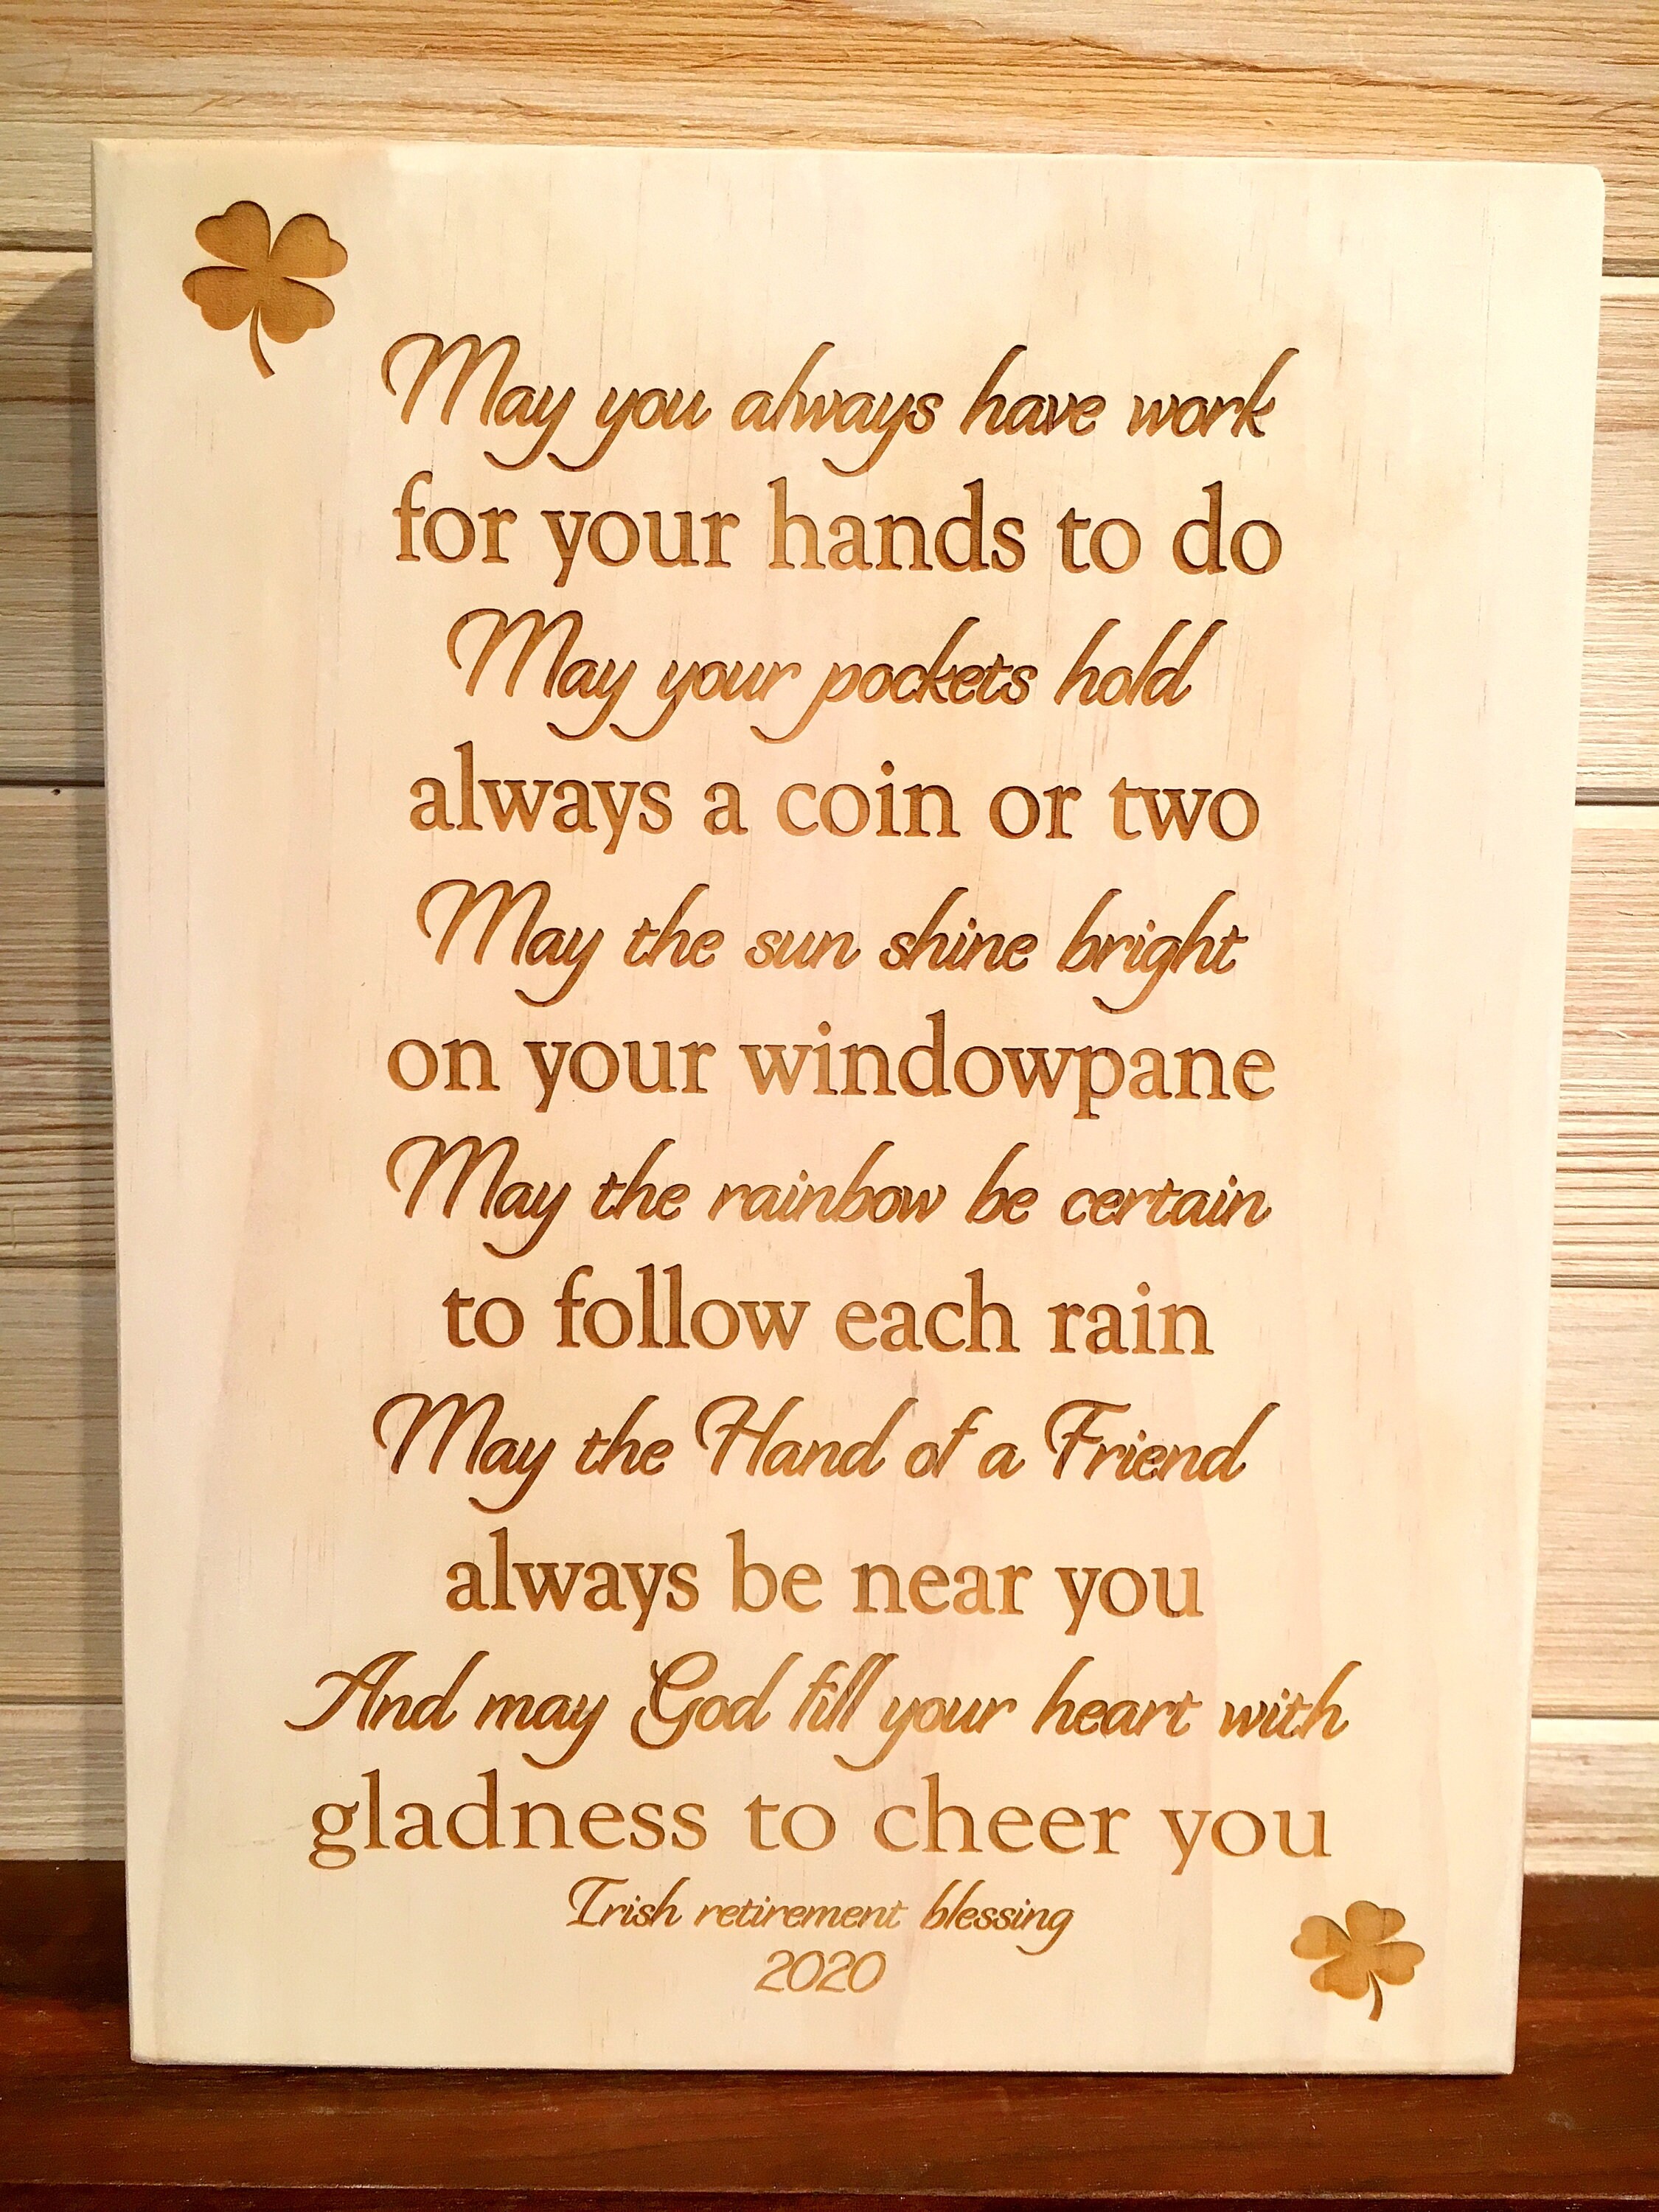 May you always have work
for your hands to do
May your pockets hold
always a coin or two
May the sun shine bright
on your windowpane
May the rainbow be certain
to follow each rain
May the Hand of a Friend
always be near you
And may God fill your heart with
gladness to cheer you
Irish retirement blessing
2020